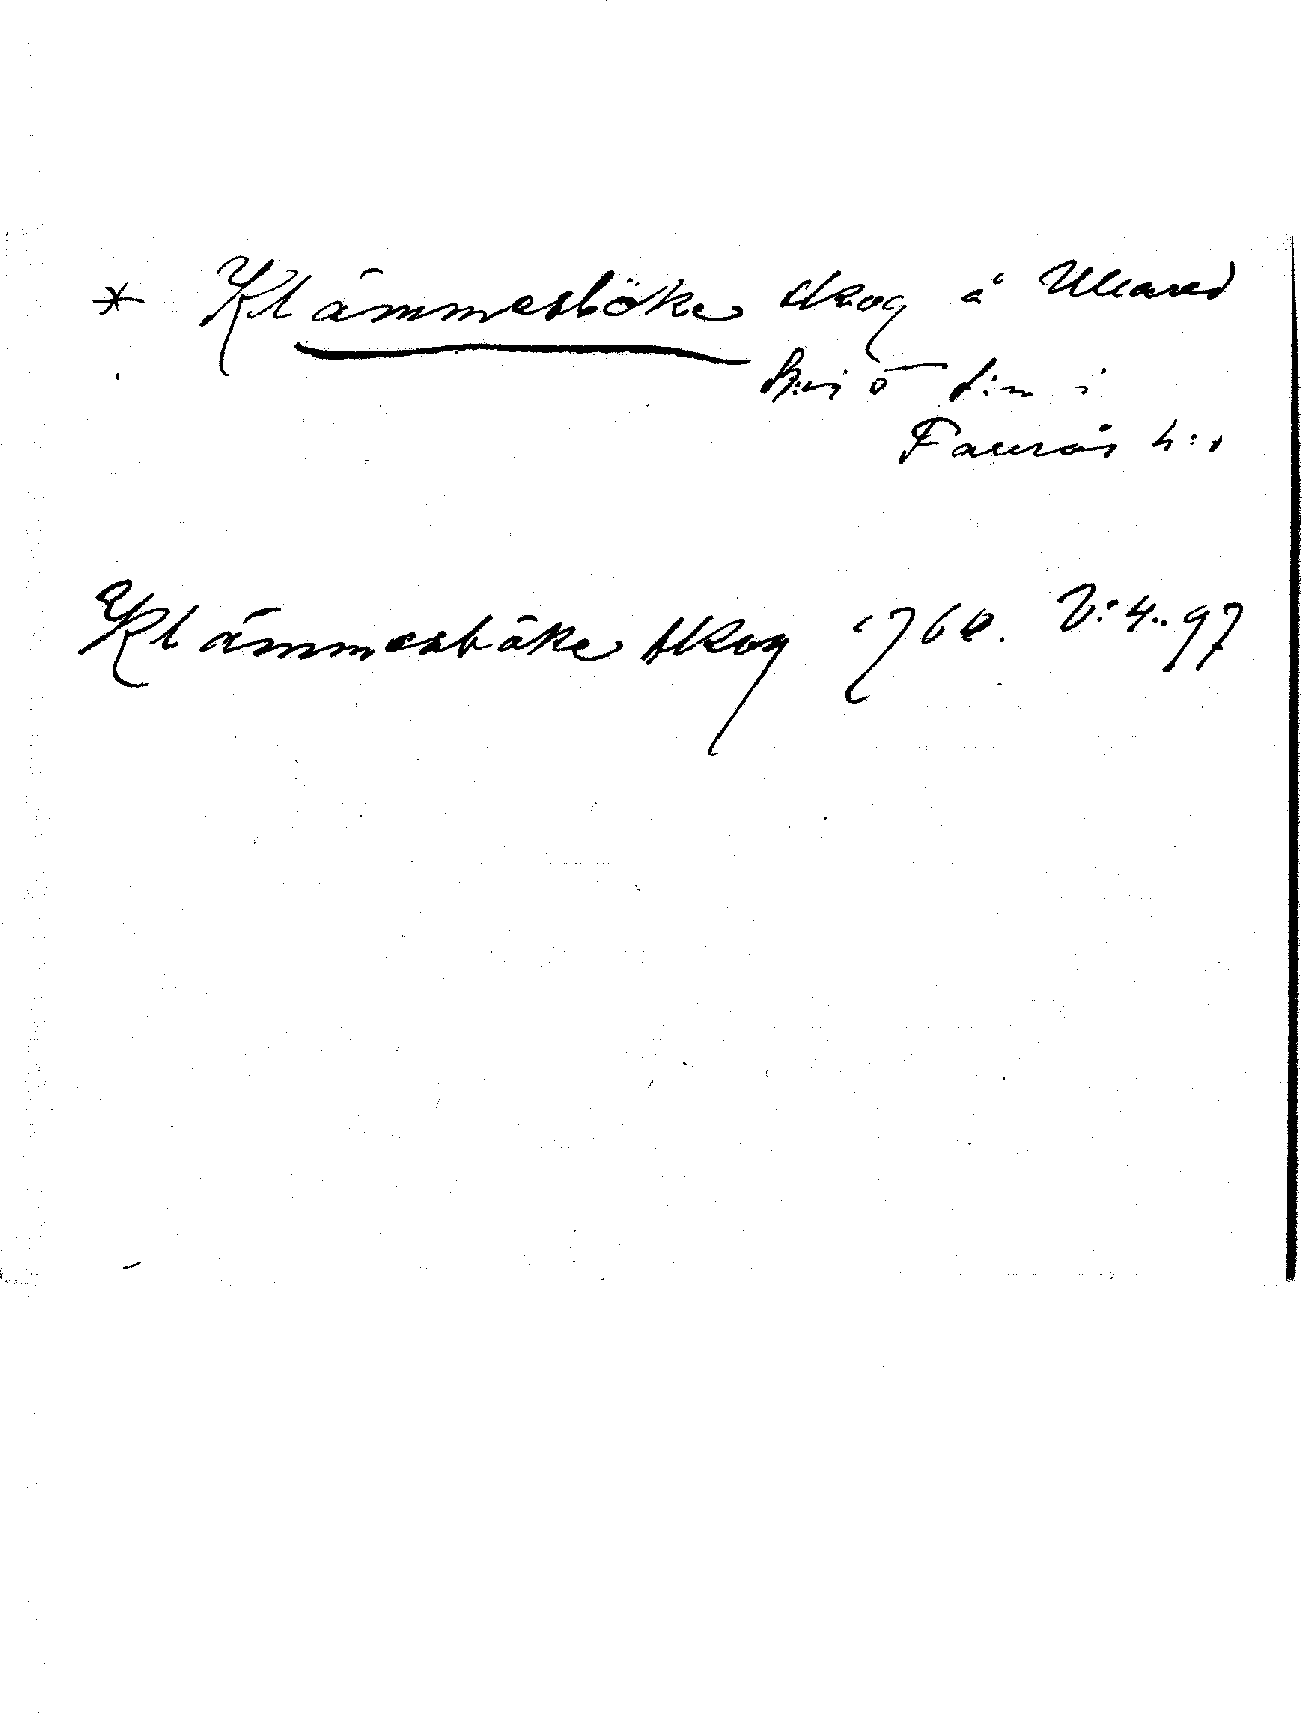 * Klämmesböke skog å Ullared
i
Faurås h:d
Klämmesböke skog 1760. V:4.. 97